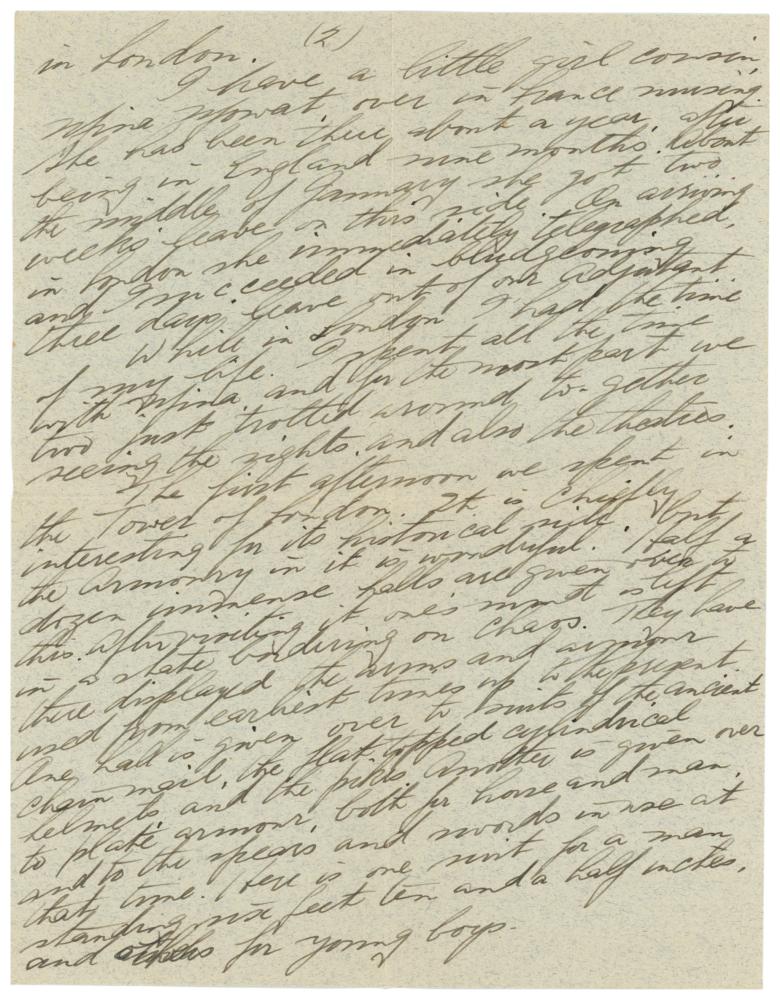 (2)
in London.
I have a little girl cousin
Nina Mowat over in France nursing.
She has been there about a year, after
being in England nine months. About
the middle of January she got two
weeks leave on this side. On arriving
in London she immediately telegraphed,
and I succeeded in bludgeoning
three days leave out of our Adjutant.
While in London I had the time
of my life. I spent all the time
with Nina and for the most part we
two just trotted around to-gether
seeing the sights, and also the theatres.
The first afternoon we spent in
the Tower of London. It is chiefly
interesting for its historical , but
the armoury in it is wonderful. Half a
dozen immense halls are given over to
this. After visiting it one's mind is left
in a state bordering on chaos. They have
there displayed the arms and armour
used from earliest times up to the present.
One hall is given over to suits of the ancient
chain mail, the flat topped cylindrical
helmets, and the pikes. Another is given over
to plate armour, both for horse and man,
and to the spears and swords in use at
that time. There is one suit for a man
standing six feet ten and a half inches,
and others for young boys.